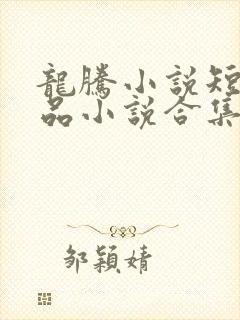 龍騰小說短
品小說合集
邹穎婧